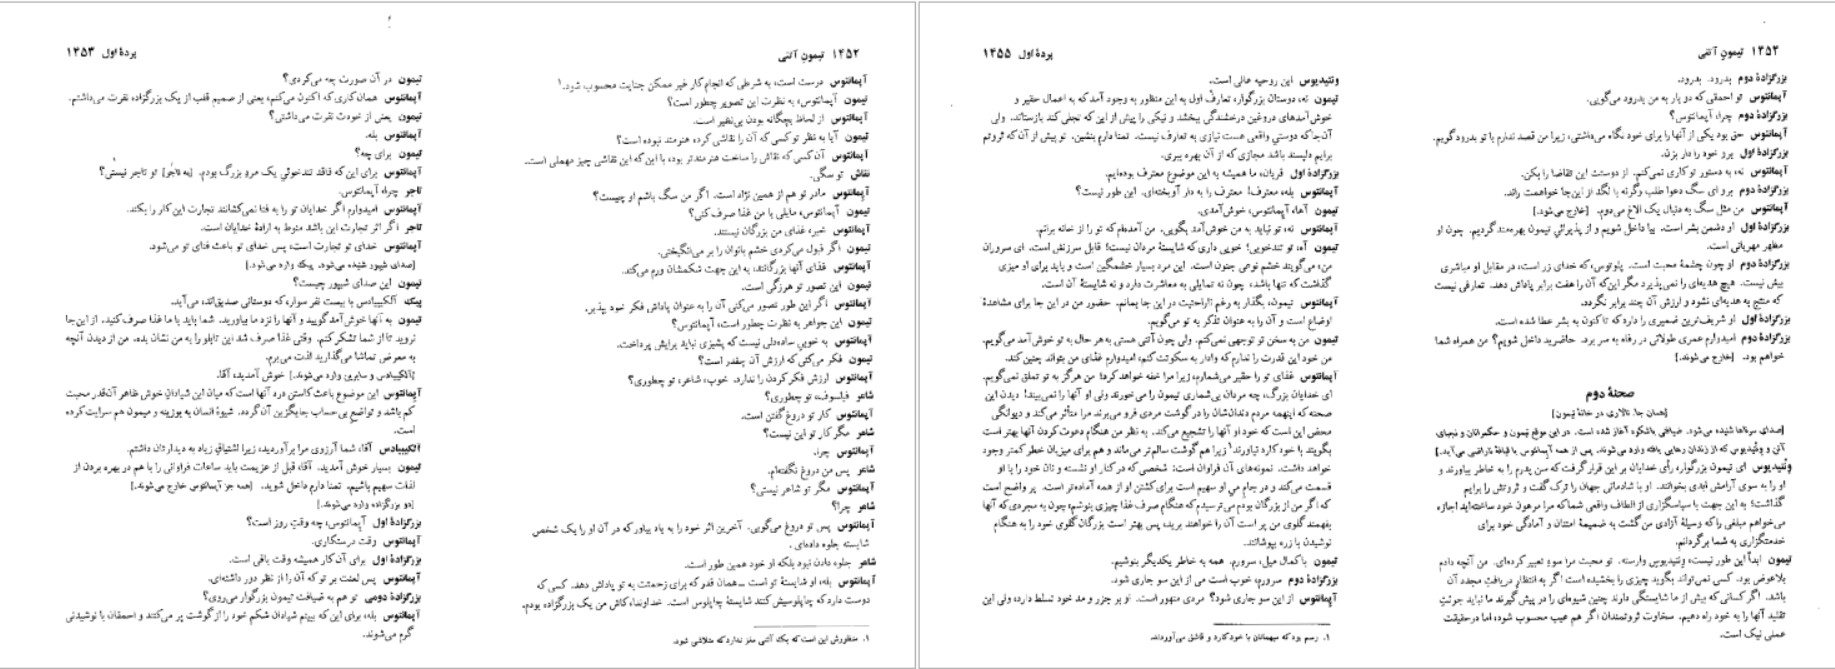 ۱۴۵۲ تیمون آتنی
آپمانتوس درست است، به شرطی که انجام کار غیر ممکن جنایت محسوب شود.۱
تیمون آپمانتوس، به نظرت این تصویر چطور است؟
آپمانتوس از لحاظ بچگانه بودن بی‌نظیر است.
تیمون آیا به نظر تو کسی که آن را نقاشی کرده هنرمند نبوده است؟
آپمانتوس آن کسی که نقاش را ساخت هنرمندتر بود، با این که این نقاشی چیز مهملی است.
نقاش تو سگی.
آپمانتوس مادر تو هم از همین نژاد است. اگر من سگ باشم او چیست؟
تیمون آپمانتوس، مایلی با من غذا صرف کنی؟
آپمانتوس خیر، غذای من بزرگان نیستند.
تیمون اگر قبول می‌کردی خشم بانوان را بر می‌انگیختی.
آپمانتوس غذای آنها بزرگانند، به این جهت شکمشان ورم می‌کند.
تیمون این تصور تو هرزگی است.
آپمانتوس اگر این طور تصور می‌کنی آن را به عنوان پاداش فکر خود بپذیر.
تیمون این جواهر به نظرت چطور است، آپمانتوس؟
آپمانتوس به خوبی ساده‌دلی نیست که پشیزی نباید برایش پرداخت.
تیمون فکر می‌کنی که ارزش آن چقدر است؟
آپمانتوس ارزش فکر کردن را ندارد. خوب، شاعر، تو چطوری؟
شاعر فیلسوف، تو چطوری؟
آپمانتوس کار تو دروغ گفتن است.
شاعر مگر کار تو این نیست؟
آپمانتوس چرا.
شاعر پس من دروغ نگفته‌ام.
آپمانتوس مگر تو شاعر نیستی؟
شاعر چرا؟
آپمانتوس پس تو دروغ می‌گویی. آخرین اثر خود را به یاد بیاور که در آن او را یک شخص
شایسته جلوه داده‌ای.
شاعر جلوه دادن نبود بلکه او خود همین طور است.
آپمانتوس بله، او شایستهٔ تو است ــ همان قدر که برای زحمتت به تو پاداش دهد. کسی که
دوست دارد که چاپلوسیش کنند شایستهٔ چاپلوس است. خداوندا، کاش من یک بزرگزاده بودم.
۱. منظورش این است که یک آتنی مغز ندارد که متلاشی شود.
پردهٔ اول ۱۴۵۳
تیمون در آن صورت چه می‌کردی؟
آپمانتوس همان کاری که اکنون می‌کنم، یعنی از صمیم قلب از یک بزرگزاده نفرت می‌داشتم.
تیمون یعنی از خودت نفرت می‌داشتی؟
آپمانتوس بله.
تیمون برای چه؟
آپمانتوس برای این که فاقد تندخوئی یک مرد بزرگ بودم. [به تاجر] تو تاجر نیستی؟
تاجر چرا، آپمانتوس.
آپمانتوس امیدوارم اگر خدایان تو را به فنا نمی‌کشانند تجارت این کار را بکند.
تاجر اگر اثر تجارت این باشد منوط به ارادهٔ خدایان است.
آپمانتوس خدای تو تجارت است، پس خدای تو باعث فنای تو می‌شود.
[صدای شیپور شنیده می‌شود. پیک وارد می‌شود.]
تیمون این صدای شیپور چیست؟
پیک آلکیبیادس با بیست نفر سوار، که دوستانی صدیق‌اند، می‌آید.
تیمون به آنها خوش‌آمد گویید و آنها را نزد ما بیاورید. شما باید با ما غذا صرف کنید. از این‌جا
نروید تا از شما تشکر کنم. وقتی غذا صرف شد این تابلو را به من نشان بده. من از دیدن آنچه
به معرض تماشا می‌گذارید لذت می‌برم.
[آلکیبیادس و سایرین وارد می‌شوند.] خوش آمدید، آقا.
آپمانتوس این موضوع باعث کاستن درد آنها است که میان این شیادان خوش ظاهر آن‌قدر محبت
کم باشد و تواضع بی‌حساب جایگزین آن گردد. شیوهٔ انسان به بوزینه و میمون هم سرایت کرده
است.
آلکیبیادس آقا، شما آرزوی مرا برآوردید، زیرا اشتیاق زیاد به دیدارتان داشتم.
تیمون بسیار خوش آمدید، آقا. قبل از عزیمت باید ساعات فراوانی را با هم در بهره بردن از
لذات سهیم باشیم. تمنا دارم داخل شوید. [همه جز آپمانتوس خارج می‌شوند.]
[دو بزرگزاده وارد می‌شوند.]
بزرگزادهٔ اول آپمانتوس، چه وقت روز است؟
آپمانتوس وقت درستکاری.
بزرگزادهٔ اول برای آن کار همیشه وقت باقی است.
آپمانتوس پس لعنت بر تو که آن را از نظر دور داشته‌ای.
بزرگزادهٔ دومی تو هم به ضیافت تیمون بزرگوار می‌روی؟
آپمانتوس بله، برای این که ببینم شیادان شکم خود را از گوشت پر می‌کنند و احمقان با نوشیدنی
گرم می‌شوند.
۱۴۵۴ تیمون آتنی
بزرگزادهٔ دوم بدرود، بدرود.
آپمانتوس تو احمقی که دو بار به من بدرود می‌گویی.
بزرگزادهٔ دوم چرا، آپمانتوس؟
آپمانتوس حق بود یکی از آنها را برای خود نگاه می‌داشتی، زیرا من قصد ندارم با تو بدرود گویم.
بزرگزادهٔ اول برو خود را دار بزن.
آپمانتوس نه، به دستور تو کاری نمی‌کنم. از دوستت این تقاضا را بکن.
بزرگزادهٔ دوم برو ای سگ دعوا طلب وگرنه با لگد از این‌جا خواهمت راند.
آپمانتوس من مثل سگ به دنبال یک الاغ می‌دوم. [خارج می‌شود.]
بزرگزادهٔ اول او دشمن بشر است. بیا داخل شویم و از پذیرائی تیمون بهره‌مند گردیم. چون او
مظهر مهربانی است.
بزرگزادهٔ دوم او چون چشمهٔ محبت است. پلوتوس، که خدای زر است، در مقابل او مباشری
بیش نیست. هیچ هدیه‌ای را نمی‌پذیرد مگر این‌که آن را هفت برابر پاداش دهد. تعارفی نیست
که منتج به هدیه‌ای نشود و ارزش آن چند برابر نگردد.
بزرگزادهٔ اول او شریف‌ترین ضمیری را دارد که تا کنون به بشر عطا شده است.
بزرگزادهٔ دوم امیدوارم عمری طولانی در رفاه به سر برد. حاضرید داخل شویم؟ من همراه شما
خواهم بود. [خارج می‌شوند.]
صحنهٔ دوم
[همان جا. تالاری در خانهٔ تیمون]
[صدای سرناها شنیده می‌شود. ضیافتی باشکوه آغاز شده است. در این موقع تیمون و حکمرانان و نجبای
آتن و ونتیدیوس که از زندان رهایی یافته وارد می‌شوند. پس از همه آپمانتوس با قیافهٔ ناراضی می‌آید.]
ونتیدیوس ای تیمون بزرگوار، رأی خدایان بر این قرار گرفت که سن پدرم را به خاطر بیاورند و
او را به سوی آرامش ابدی بخوانند. او با شادمانی جهان را ترک گفت و ثروتش را برایم
گذاشت؛ به این جهت با سپاسگزاری از الطاف واقعی شما که مرا مرهون خود ساخته‌اید اجازه
می‌خواهم مبلغی را که وسیلهٔ آزادی من گشت به ضمیمهٔ امتنان و آمادگی خود برای
خدمتگزاری به شما برگردانم.
تیمون ابداً این طور نیست، ونتیدیوس وارسته. تو محبت مرا سوء تعبیر کرده‌ای. من آنچه دادم
بلاعوض بود. کسی نمی‌تواند بگوید چیزی را بخشیده است اگر به انتظار دریافت مجدد آن
باشد. اگر کسانی که بیش از ما شایستگی دارند چنین شیوه‌ای را در پیش گیرند ما نباید جرئت
تقلید آنها را به خود راه دهیم. سخاوت ثروتمندان اگر هم عیب محسوب شود، اما در حقیقت
عملی نیک است.
پردهٔ اول ۱۴۵۵
ونتیدیوس این روحیه عالی است.
تیمون نه، دوستان بزرگوار، تعارف اول به این منظور به وجود آمد که به اعمال حقیر و
خوش‌آمدهای دروغین درخشندگی ببخشد و نیکی را پیش از این که تجلی کند بازستاند. ولی
آن‌جا که دوستی واقعی هست نیازی به تعارف نیست. تمنا دارم بنشین. تو بیش از آن که ثروتم
برایم دلپسند باشد مجازی که از آن بهره ببری.
بزرگزادهٔ اول قربان، ما همیشه به این موضوع معترف بوده‌ایم.
آپمانتوس بله، معترف! معترف را به دار آویخته‌ای. این طور نیست؟
تیمون آهاه، آپمانتوس، خوش‌آمدی.
آپمانتوس نه، تو نباید به من خوش‌آمد بگویی. من آمده‌ام که تو را از خانه برانم.
تیمون آه، تو تندخویی؛ خویی داری که شایستهٔ مردان نیست؛ قابل سرزنش است. ای سروران
من، می‌گویند خشم نوعی جنون است. این مرد بسیار خشمگین است و باید برای او میزی
گذاشت که تنها باشد، چون نه تمایلی به معاشرت دارد و نه شایستهٔ آن است.
آپمانتوس تیمون، بگذار به رغم ناراحتیت در این جا بمانم. حضور من در این جا برای مشاهدهٔ
اوضاع است و آن را به عنوان تذکر به تو می‌گویم.
تیمون من به سخن تو توجهی نمی‌کنم. ولی چون آتنی هستی به هر حال به تو خوش‌آمد می‌گویم.
من خود این قدرت را ندارم که وادار به سکوتت کنم، امیدوارم غذای من بتواند چنین کند.
آپمانتوس غذای تو را حقیر می‌شمارم، زیرا مرا خفه خواهد کرد؛ من هرگز به تو تملق نمی‌گویم.
ای خدایان بزرگ، چه مردان بی‌شماری تیمون را می‌خورند ولی او آنها را نمی‌بیند! دیدن این
صحنه که اینهمه مردم دندان‌شان را در گوشت مردی فرو می‌برند مرا متأثر می‌کند و دیوانگی
محض این است که خود او آنها را تشجیع می‌کند. به نظر من هنگام دعوت کردن آنها بهتر است
بگویند با خود کارد نیاورند۱ زیرا هم گوشت سالم‌تر می‌ماند و هم برای میزبان خطر کمتر وجود
خواهد داشت. نمونه‌های آن فراوان است: شخصی که در کنار او نشسته و نان خود را با او
قسمت می‌کند و در جام می او سهیم است برای کشتن او از همه آماده‌تر است. پر واضح است
که اگر من از بزرگان بودم می‌ترسیدم که هنگام صرف غذا چیزی بنوشم، چون به مجردی که آنها
بفهمند گلوی من پر است آن را خواهند برید، پس بهتر است بزرگان گلوی خود را به هنگام
نوشیدن با زره بپوشانند.
تیمون با کمال میل، سرورم. همه به خاطر یکدیگر بنوشیم.
بزرگزادهٔ دوم سرورم، خوب است می از این سو جاری شود.
آپمانتوس از این سو جاری شود؟ مردی متهور است. او بر جزر و مد خود تسلط دارد، ولی این
۱. رسم بود که میهمانان با خود کارد و قاشق می‌آوردند.